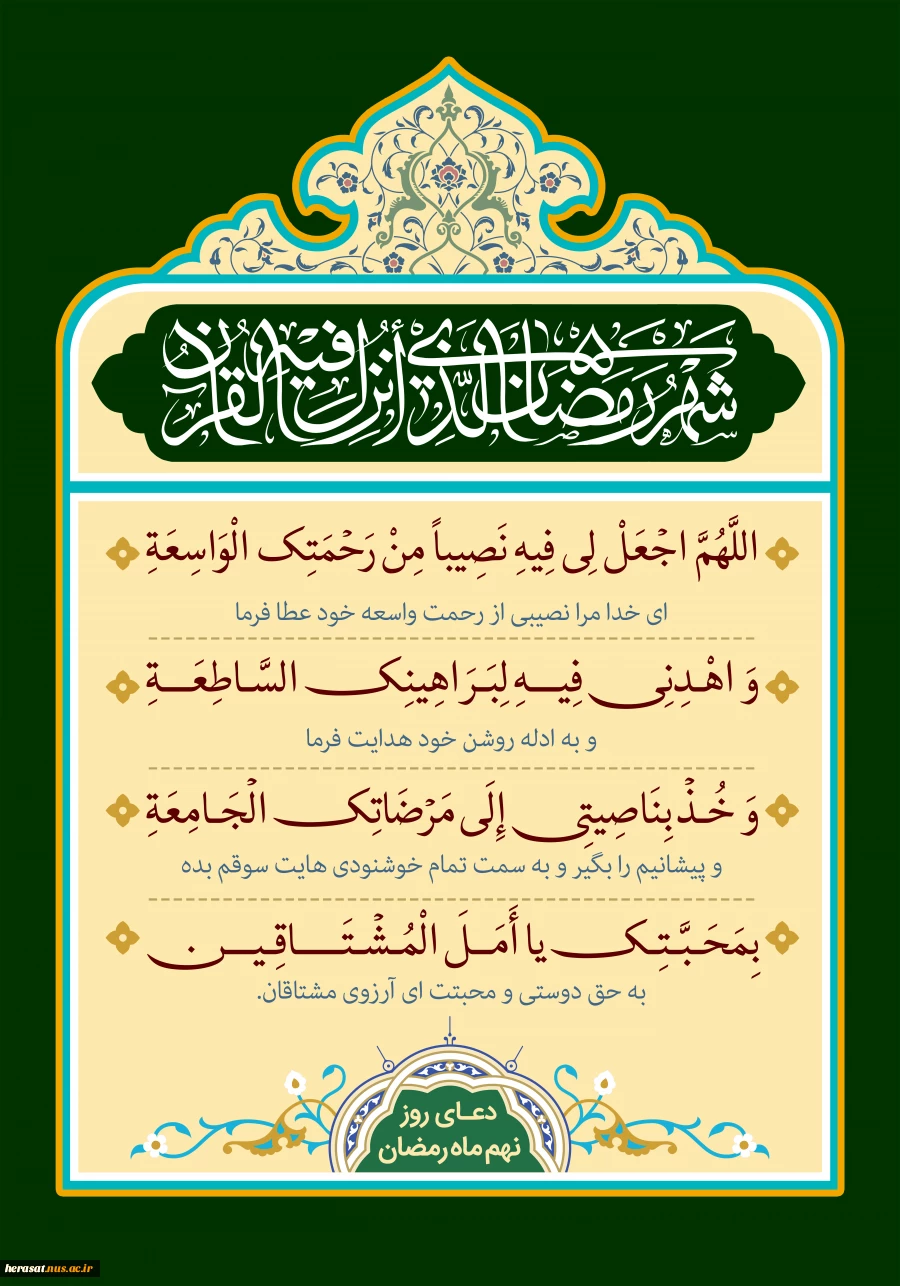 شَهْرُ رَمَضَانَ الَّذِي أُنْزِلَ فِيهِ الْقُرْآنُ
اللَّهُمَّ اجْعَلْ لِی فِیهِ نَصِیباً مِنْ رَحْمَتِک الْوَاسِعَةِ
ای خدا مرا نصیبی از رحمت واسعه خود عطا فرما
وَ اهْدِنِی فِیهِ لِبَرَاهِینِک السَّاطِعَةِ
و به ادله روشن خود هدایت فرما
وَ خُذْ بِنَاصِیتِی إِلَی مَرْضَاتِک الْجَامِعَةِ
و پیشانیم را بگیر و به سمت تمام خوشنودی هایت سوقم بده
بِمَحَبَّتِک یا أَمَلَ الْمُشْتَاقِین
به حق دوستی و محبتت ای آرزوی مشتاقان.
دعای روز
نهم ماه رمضان
herasat.nus.ac.ir